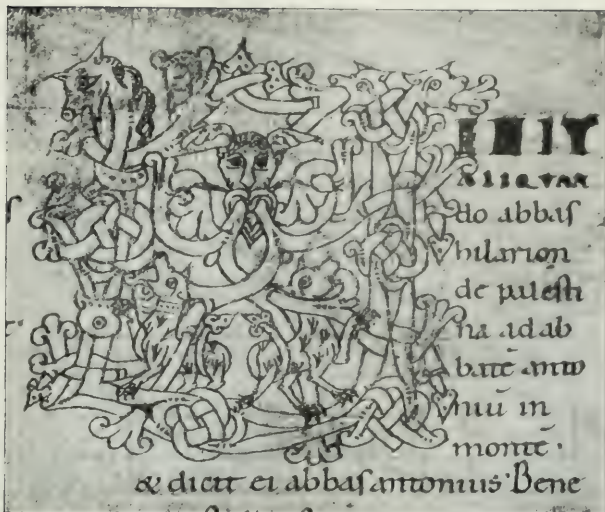 ENIT
ALIQVAN
do abbaſ
hilarion
de paleſti
na ad ab
batē anto
niū in
montē ·
& dicit ei abbaſ antonius · Bene